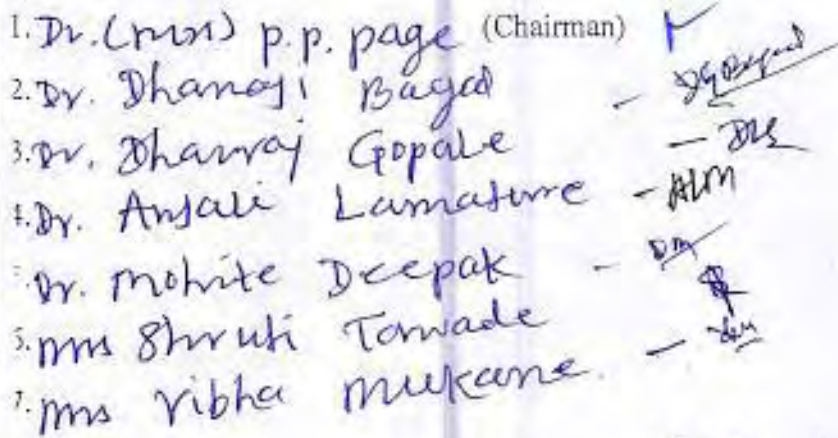 1. Dr. (mrs) p.p. page (Chairman)
2. Dr. Dhanaji Bagal - DGBagal
3. Dr. Dhanraj Gopale - DG
4. Dr. Anjali Lamature - ALM
Dr. Mohite Deepak - DM
Mrs Shruti Tomade
7. Mrs Vibha Mukane. -